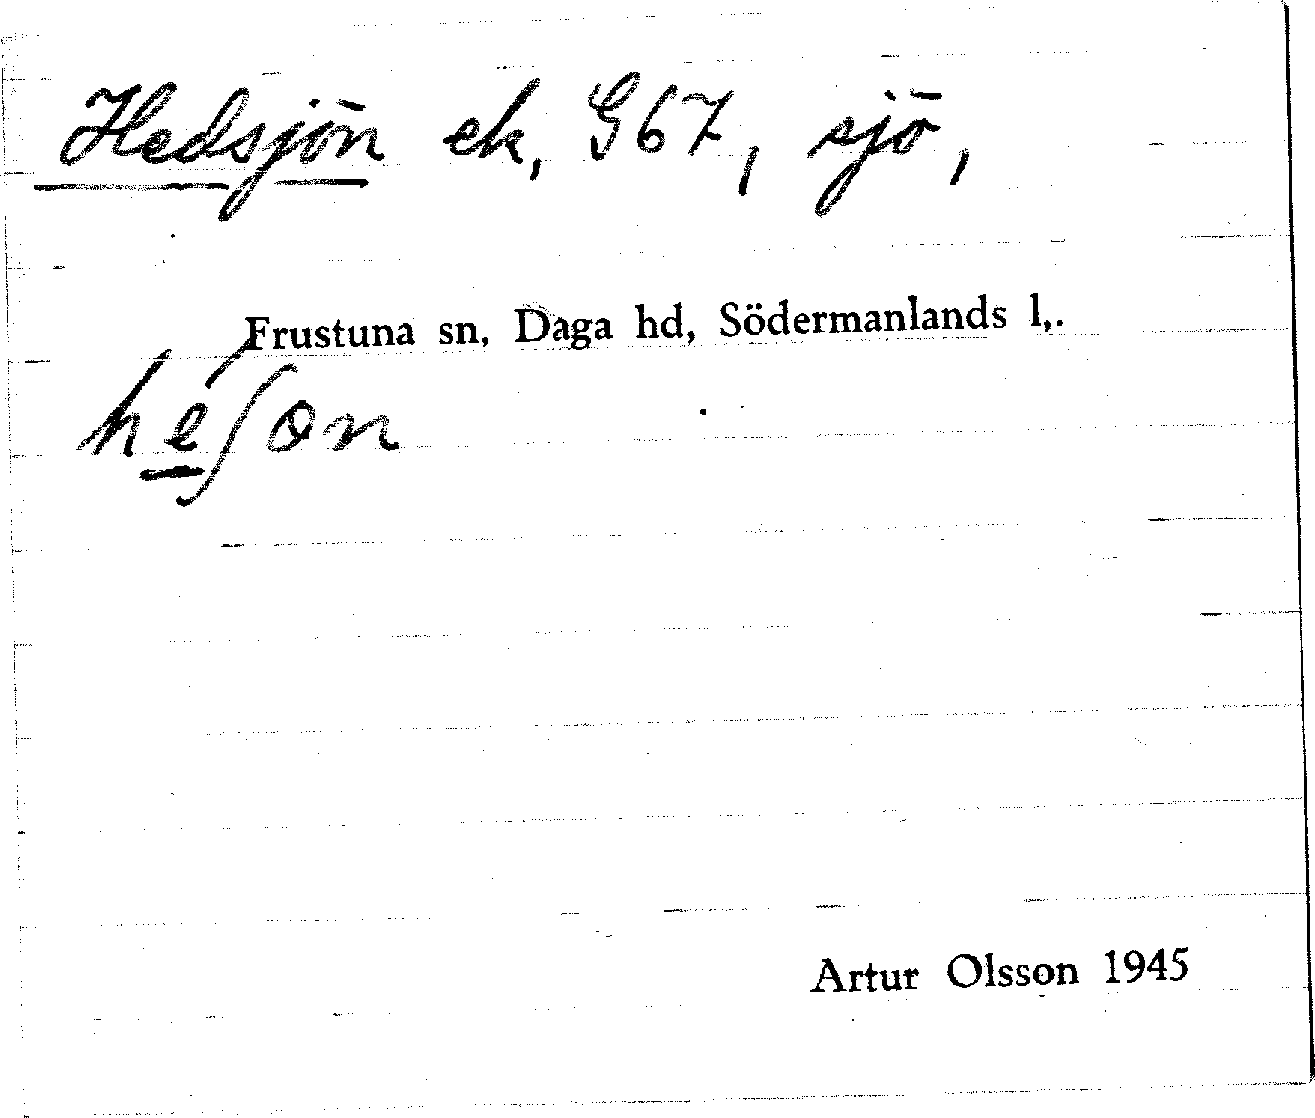 Hedsjön ek, G67, sjö,
Frustuna sn, Daga hd, Södermanlands l,.
hé̲ʃon
Artur Olsson 1945